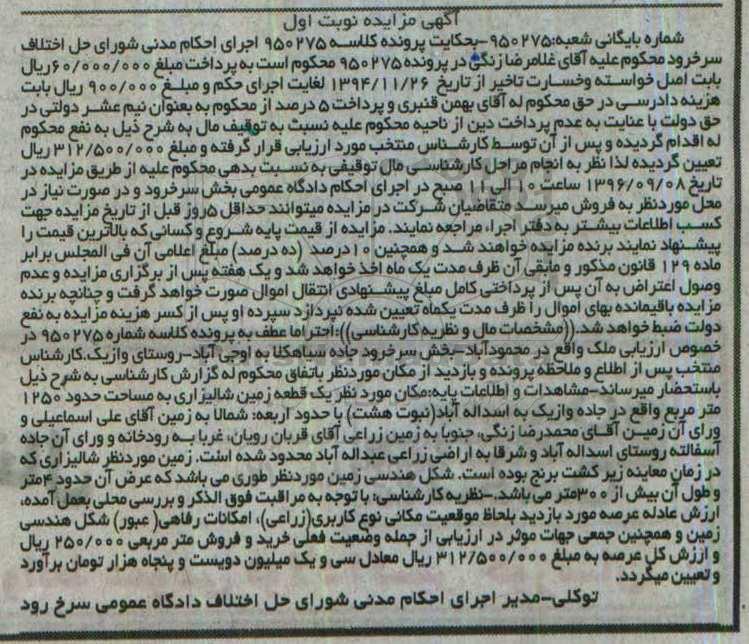 آگهی مزایده نوبت اول
شماره بایگانی شعبه:۹۵۰۲۷۵-بحکایت پرونده کلاسه ۹۵۰۲۷۵ اجرای احکام مدنی شورای حل اختلاف
سرخرود محکوم علیه آقای غلامرضا زنگی در پرونده ۹۵۰۲۷۵ محکوم است به پرداخت مبلغ ۶۰/۰۰۰/۰۰۰ ریال
بابت اصل خواسته وخسارت تاخیر از تاریخ ۱۳۹۴/۱۱/۲۶ لغایت اجرای حکم و مبلغ ۹۰۰/۰۰۰ ریال بابت
هزینه دادرسی در حق محکوم له آقای بهمن قنبری و پرداخت ۵ درصد از محکوم به بعنوان نیم عشر دولتی در
حق دولت با عنایت به عدم پرداخت دین از ناحیه محکوم علیه نسبت به توقیف مال به شرح ذیل به نفع محکوم
له اقدام گردیده و پس از آن توسط کارشناس منتخب مورد ارزیابی قرار گرفته و مبلغ ۳۱۲/۵۰۰/۰۰۰ ریال
تعیین گردیده لذا نظر به انجام مراحل کارشناسی مال توقیفی به نسبت بدهی محکوم علیه از طریق مزایده در
تاریخ ۱۳۹۶/۰۹/۰۸ ساعت ۱۰ الی ۱۱ صبح در اجرای احکام دادگاه عمومی بخش سرخرود و در صورت نیاز در
محل موردنظر به فروش میرسد متقاضیان شرکت در مزایده میتوانند حداقل ۵روز قبل از تاریخ مزایده جهت
کسب اطلاعات بیشتر به دفتر اجراء مراجعه نمایند. مزایده از قیمت پایه شروع و کسانی که بالاترین قیمت را
پیشنهاد نمایند برنده مزایده خواهند شد و همچنین ۱۰درصد (ده درصد) مبلغ اعلامی آن فی المجلس برابر
ماده ۱۲۹ قانون مذکور و مابقی آن ظرف مدت یک ماه اخذ خواهد شد و یک هفته پس از برگزاری مزایده و عدم
وصول اعتراض به آن پس از پرداختی کامل مبلغ پیشنهادی انتقال اموال صورت خواهد گرفت و چنانچه برنده
مزایده باقیمانده بهای اموال را ظرف مدت یکماه تعیین شده نپردازد سپرده او پس از کسر هزینه مزایده به نفع
دولت ضبط خواهد شد.((مشخصات مال و نظریه کارشناسی)):احتراما عطف به پرونده کلاسه شماره ۹۵۰۲۷۵ در
خصوص ارزیابی ملک واقع در محمودآباد-بخش سرخرود جاده سیاهکلا به اوجی آباد-روستای وازیک.کارشناس
منتخب پس از اطلاع و ملاحظه پرونده و بازدید از مکان موردنظر باتفاق محکوم له گزارش کارشناسی به شرح ذیل
باستحضار میرساند-مشاهدات و اطلاعات پایه:مکان مورد نظر یک قطعه زمین شالیزاری به مساحت حدود ۱۲۵۰
متر مربع واقع در جاده وازیک به اسداله آباد(نبوت هشت) با حدود اربعه: شمالا به زمین آقای علی اسماعیلی و
ورای آن زمین آقای محمدرضا زنگی، جنوبا به زمین زراعی آقای قربان رویان، غربا به رودخانه و ورای آن جاده
آسفالته روستای اسداله آباد و شرقا به اراضی زراعی عبداله آباد محدود شده است. زمین موردنظر شالیزاری که
در زمان معاینه زیر کشت برنج بوده است. شکل هندسی زمین موردنظر طوری می باشد که عرض آن حدود ۴متر
و طول آن بیش از ۳۰۰متر می باشد.-نظریه کارشناسی: با توجه به مراقبت فوق الذکر و بررسی محلی بعمل آمده،
ارزش عادله عرصه مورد بازدید بلحاظ موقعیت مکانی نوع کاربری(زراعی)، امکانات رفاهی( عبور) شکل هندسی
زمین و همچنین جمعی جهات موثر در ارزیابی از جمله وضعیت فعلی خرید و فروش متر مربعی ۲۵۰/۰۰۰ ریال
و ارزش کل عرصه به مبلغ ۳۱۲/۵۰۰/۰۰۰ ریال معادل سی و یک میلیون دویست و پنجاه هزار تومان برآورد
و تعیین میگردد.
توکلی-مدیر اجرای احکام مدنی شورای حل اختلاف دادگاه عمومی سرخ رود